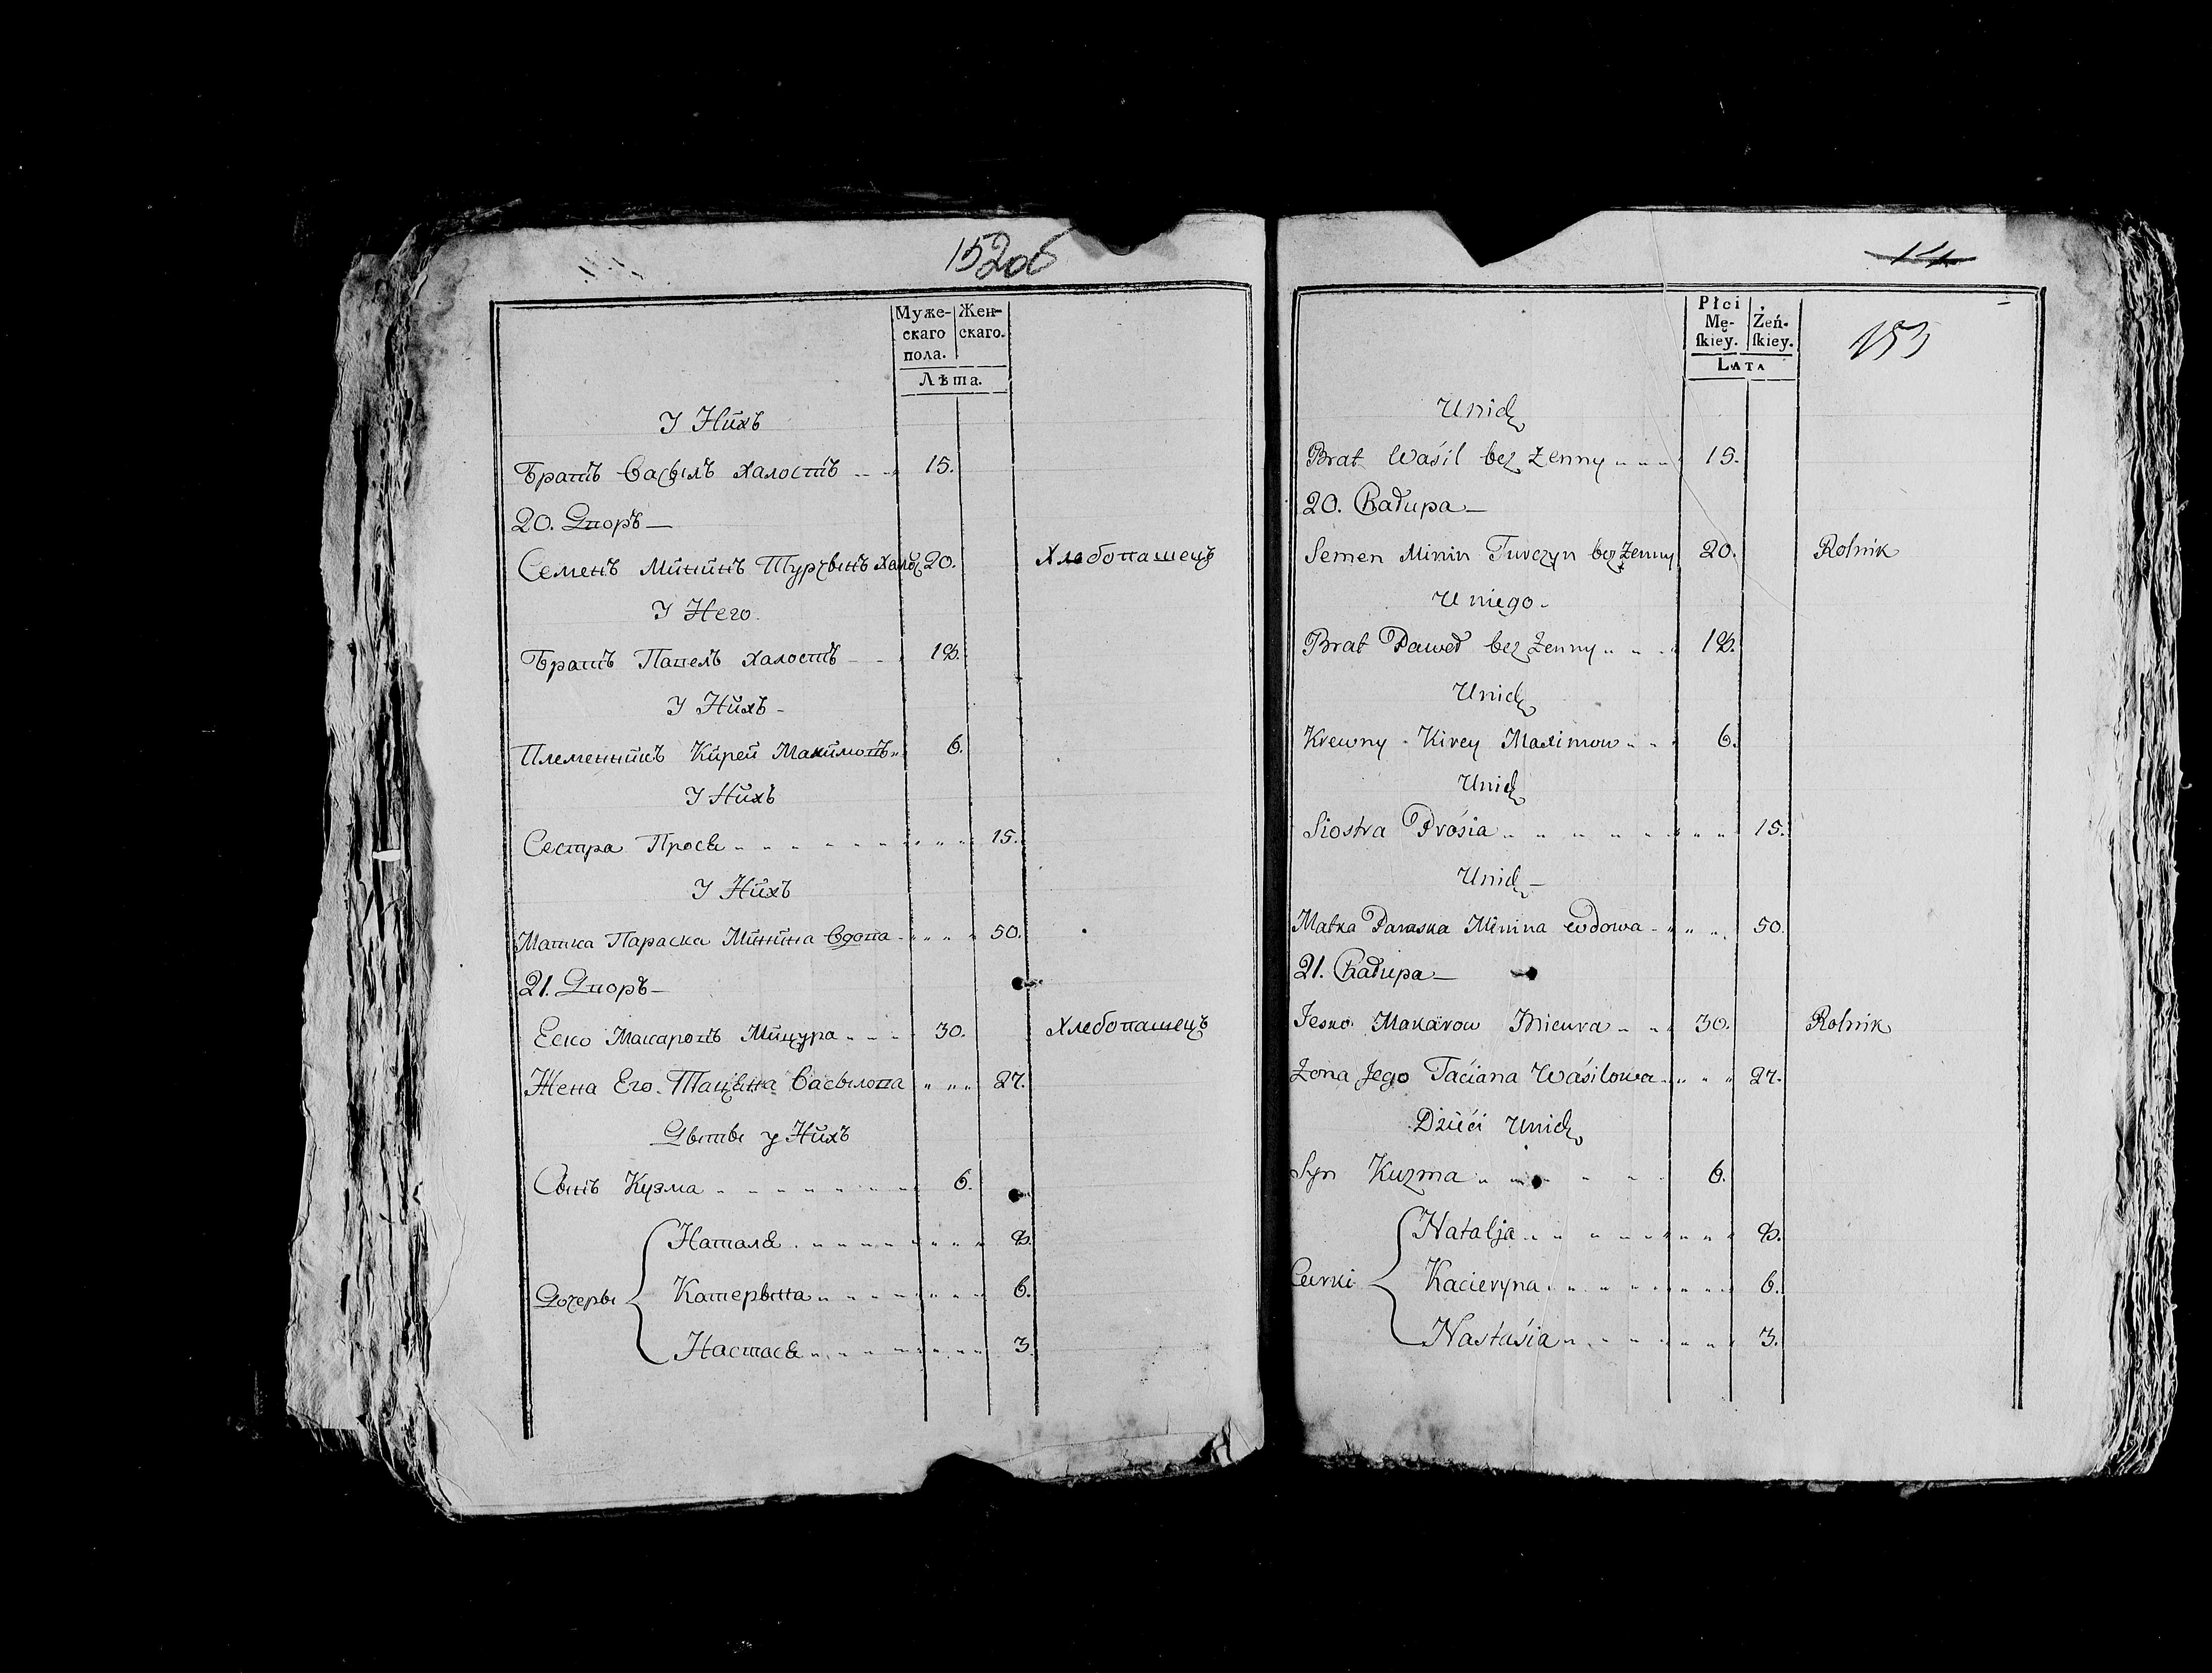 152об
Муже-
скаго
пола.
Жен-
скаго.
Лѣта.
У Нихъ
Братъ Васылъ халостъ 15.
20. Дворъ
Семенъ Мининъ Турчынъ 20. Хлебопашецъ
У Него.
Братъ Павелъ халостъ 18.
У Нихъ
Племенникъ Кирей Макимовъ 6.
У Нихъ
Сестра Прося 15.
У Нихъ
Матка Параска Минина Вдова 50.
21. Дворъ
Еско Макаровъ Мицура 30. Хлебопашецъ
Жена Его Тацяна Васылова 27.
Дѣты у Нихъ
Сынъ Кузма 6.
Дочеры
Наталя 8.
Катерына 6.
Настася 3.
14
153
Płci
Mę-
ſkiey.
Żeń-
ſkiey.
LATA
Unich
Brat Waśil bez Zenny 15.
20. Chałupa
Semen Minin Turczyn bez Zenny 20. Rolnik
U niego
Brat Paweł bez Zenny 18.
Unich
Krewny Kirey Maximow 6.
Unich
Siostra Prośia 15.
Unich
Matka Paraska Minina wdowa 50.
21. Chałupa
Jesko Makarow Micura 30. Rolnik
Żona Jego Taciana Waśilowa 27.
Dzieći Unich
Syn Kuzma 6.
Curki
Natalja 8.
Kacieryna 6.
Nastaśia 3.